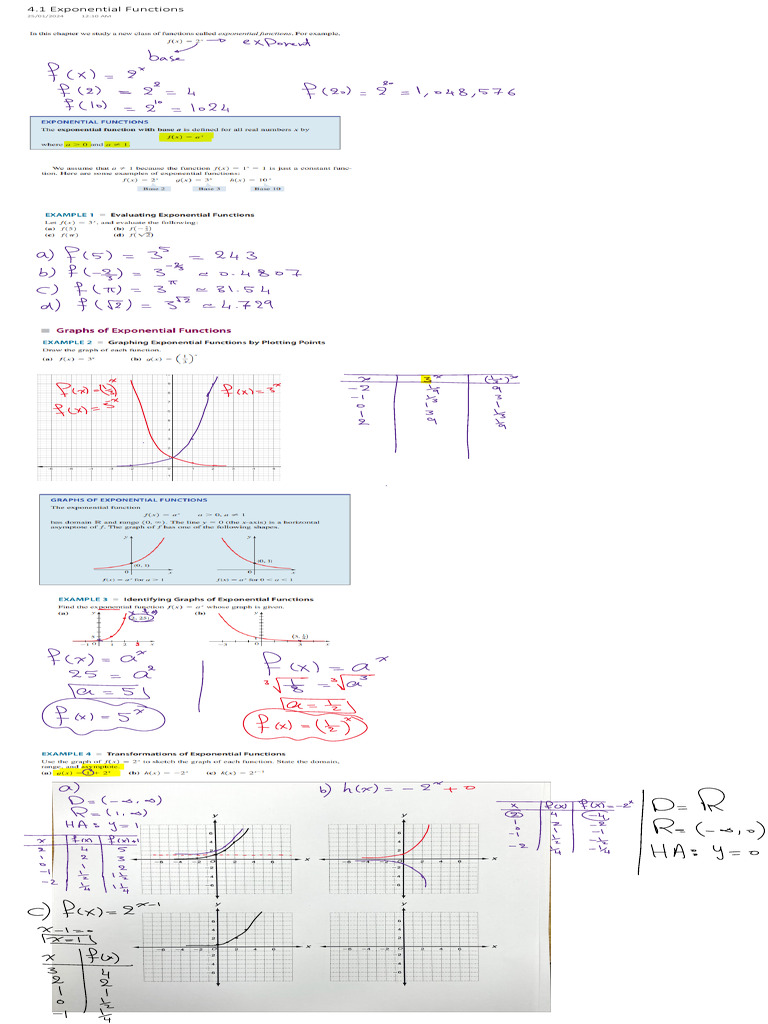 4.1 Exponential Functions
25/01/2024 12:10 AM
In this chapter we study a new class of functions called exponential functions. For example,
f(x) = 2ˣ → exponent
base
f(x) = 2ˣ
f(2) = 2² = 4
f(10) = 2¹⁰ = 1024
f(20) = 2²⁰ = 1,048,576
EXPONENTIAL FUNCTIONS
The exponential function with base a is defined for all real numbers x by
f(x) = aˣ
where a > 0 and a ≠ 1
We assume that a ≠ 1 because the function f(x) = 1ˣ = 1 is just a constant func-
tion. Here are some examples of exponential functions:
f(x) = 2ˣ g(x) = 3ˣ h(x) = 10ˣ
Base 2 Base 3 Base 10
EXAMPLE 1 = Evaluating Exponential Functions
Let f(x) = 3ˣ, and evaluate the following:
(a) f(5) (b) f(-2/3)
(c) f(π) (d) f(√2)
a) f(5) = 3⁵ = 243
b) f(-2/3) = 3^(-2/3) ≈ 0.4807
c) f(π) = 3^π ≈ 31.54
d) f(√2) = 3^√2 ≈ 4.729
Graphs of Exponential Functions
EXAMPLE 2 = Graphing Exponential Functions by Plotting Points
Draw the graph of each function.
(a) f(x) = 3ˣ (b) g(x) = (1/3)ˣ
f(x) = (1/3)ˣ
f(x) = 3ˣ
f(x) = 3ˣ
x 3ˣ (1/3)ˣ
-2 1/9 9
-1 1/3 3
0 1 1
1 3 1/3
2 9 1/9
GRAPHS OF EXPONENTIAL FUNCTIONS
The exponential function
f(x) = aˣ a > 0, a ≠ 1
has domain R and range (0, ∞). The line y = 0 (the x-axis) is a horizontal
asymptote of f. The graph of f has one of the following shapes.
y y
(0, 1) (0, 1)
0 x 0 x
f(x) = aˣ for a > 1 f(x) = aˣ for 0 < a < 1
EXAMPLE 3 = Identifying Graphs of Exponential Functions
Find the exponential function f(x) = aˣ whose graph is given.
(a) (b)
(2, 25)
(3, 1/8)
f(x) = aˣ
25 = a²
a = 5
f(x) = 5ˣ
f(x) = aˣ
³√1/8 = ³√a³
a = 1/2
f(x) = (1/2)ˣ
EXAMPLE 4 = Transformations of Exponential Functions
Use the graph of f(x) = 2ˣ to sketch the graph of each function. State the domain,
range, and asymptote.
(a) g(x) = 1 + 2ˣ (b) h(x) = -2ˣ (c) k(x) = 2ˣ⁻¹
a)
D = (-∞, ∞)
R = (1, ∞)
HA: y = 1
x f(x) f(x)+1
2 4 5
1 2 3
0 1 2
-1 1/2 1 1/2
-2 1/4 1 1/4
b) h(x) = -2ˣ + 0
x f(x) f(x) = -2ˣ
2 4 -4
1 2 -2
0 1 -1
-1 1/2 -1/2
-2 1/4 -1/4
D = R
R = (-∞, 0)
HA: y = 0
c) f(x) = 2ˣ⁻¹
x-1=0
x=1
x f(x)
3 4
2 2
1 1
0 1/2
-1 1/4